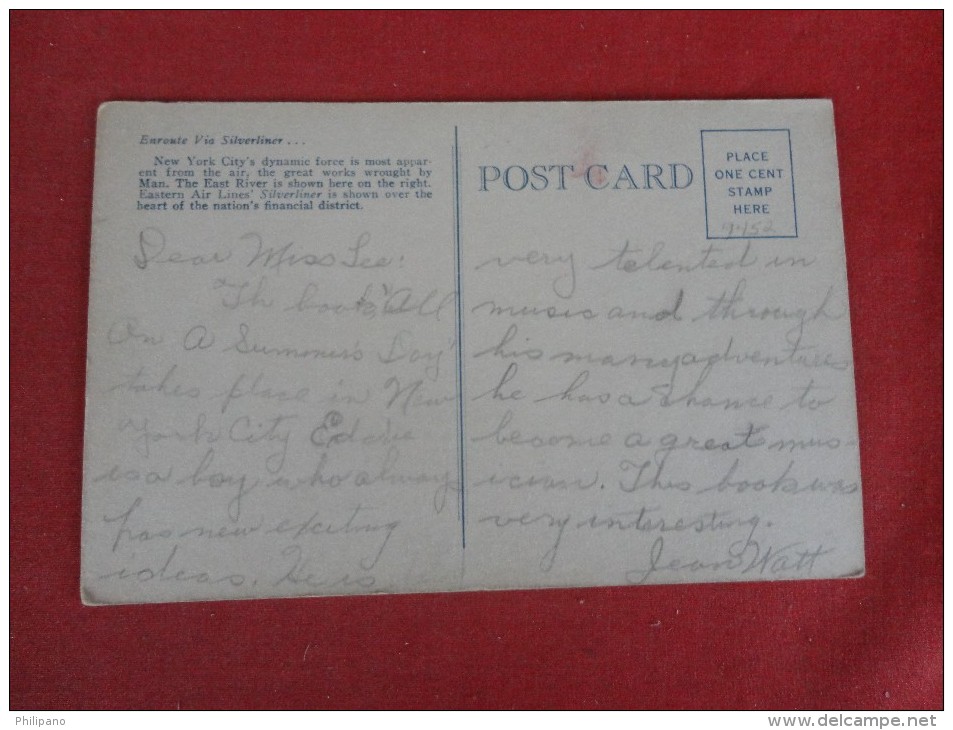 Enroute Via Silverliner...
New York City's dynamic force is most appar-
ent from the air, the great works wrought by
Man. The East River is shown here on the right.
Eastern Air Lines' Silverliner is shown over the
heart of the nation's financial district.
POST CARD
PLACE
ONE CENT
STAMP
HERE
9-152
Dear Miss Lee:
Th book, "All
On A Summer's Day"
takes place in New
York City Eddie
is a boy who always
has new exciting
ideas. He is
very telented in
music and through
his many adventures
he has a chance to
become a great mus-
ician. This book was
very interesting.
Jean Watt
Philipano
www.delcampe.net